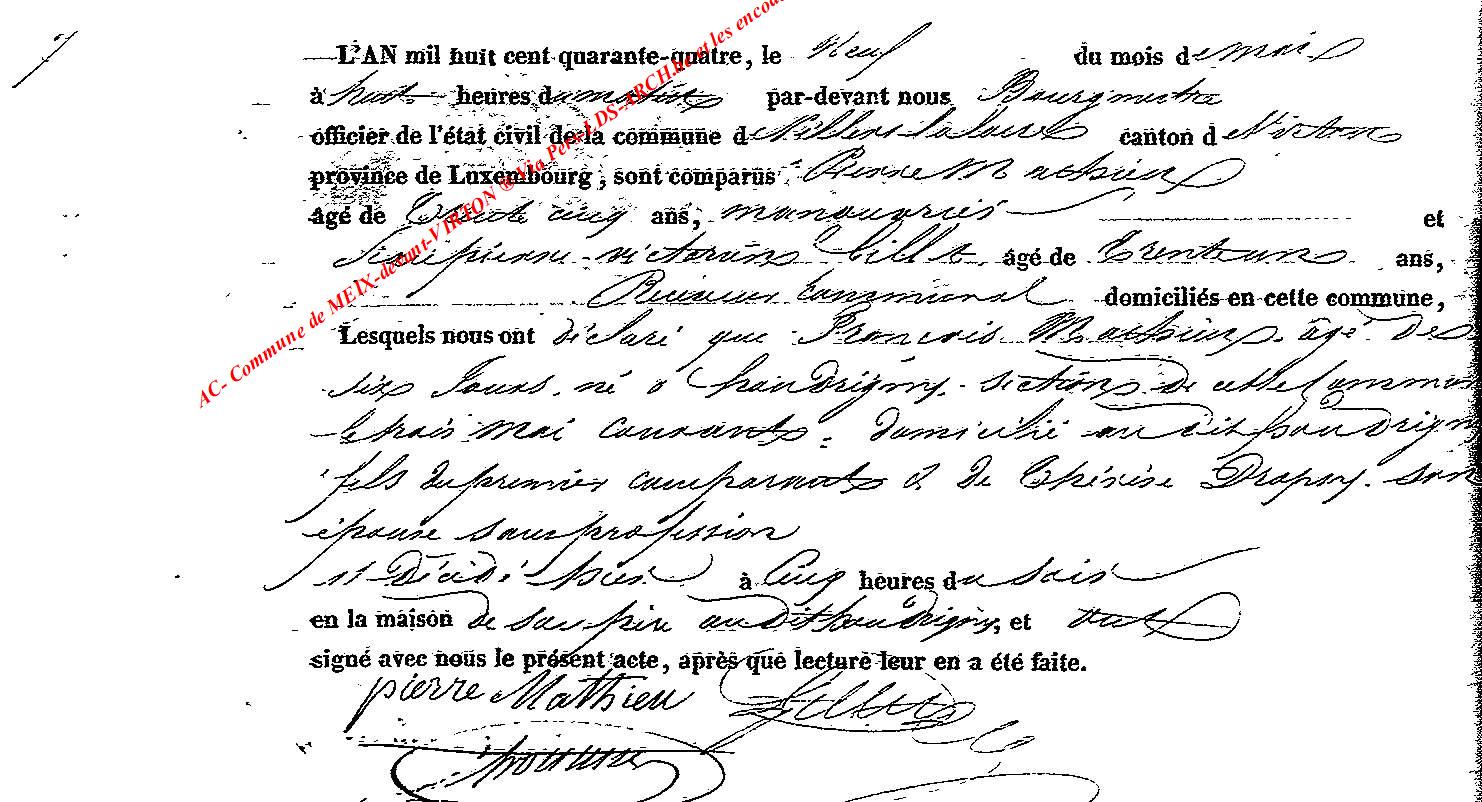 7
L'AN mil huit cent quarante-quatre, le Neuf du mois de mai
à huit heures du matin par-devant nous Bourgmestre
officier de l'état civil de la commune de Villers la loue canton de Virton
province de Luxembourg, sont comparus Pierre Mathieu
âgé de Trente cinq ans, manouvrier et
Jean pierre victorin Gillet âgé de Trente ans ans,
Receveur Communal domiciliés en cette commune,
Lesquels nous ont déclaré que François Mathieu âgé de
six Jours né à houdrigny section de cette Commun
le trois Mai courant, domicilié au dit houdrign
fils du premier comparant & de Thérèse Drapoy son
épouse sans profession
est Décédé hier à Cinq heures du soir
en la maison de son père au Dit houdrigny, et ont
signé avec nous le présent acte, après que lecture leur en a été faite.
pierre Mathieu Gillet
AC- Commune de MEIX-devant-VIRTON ® Via Pers-LDS-ARCH.be et les encod